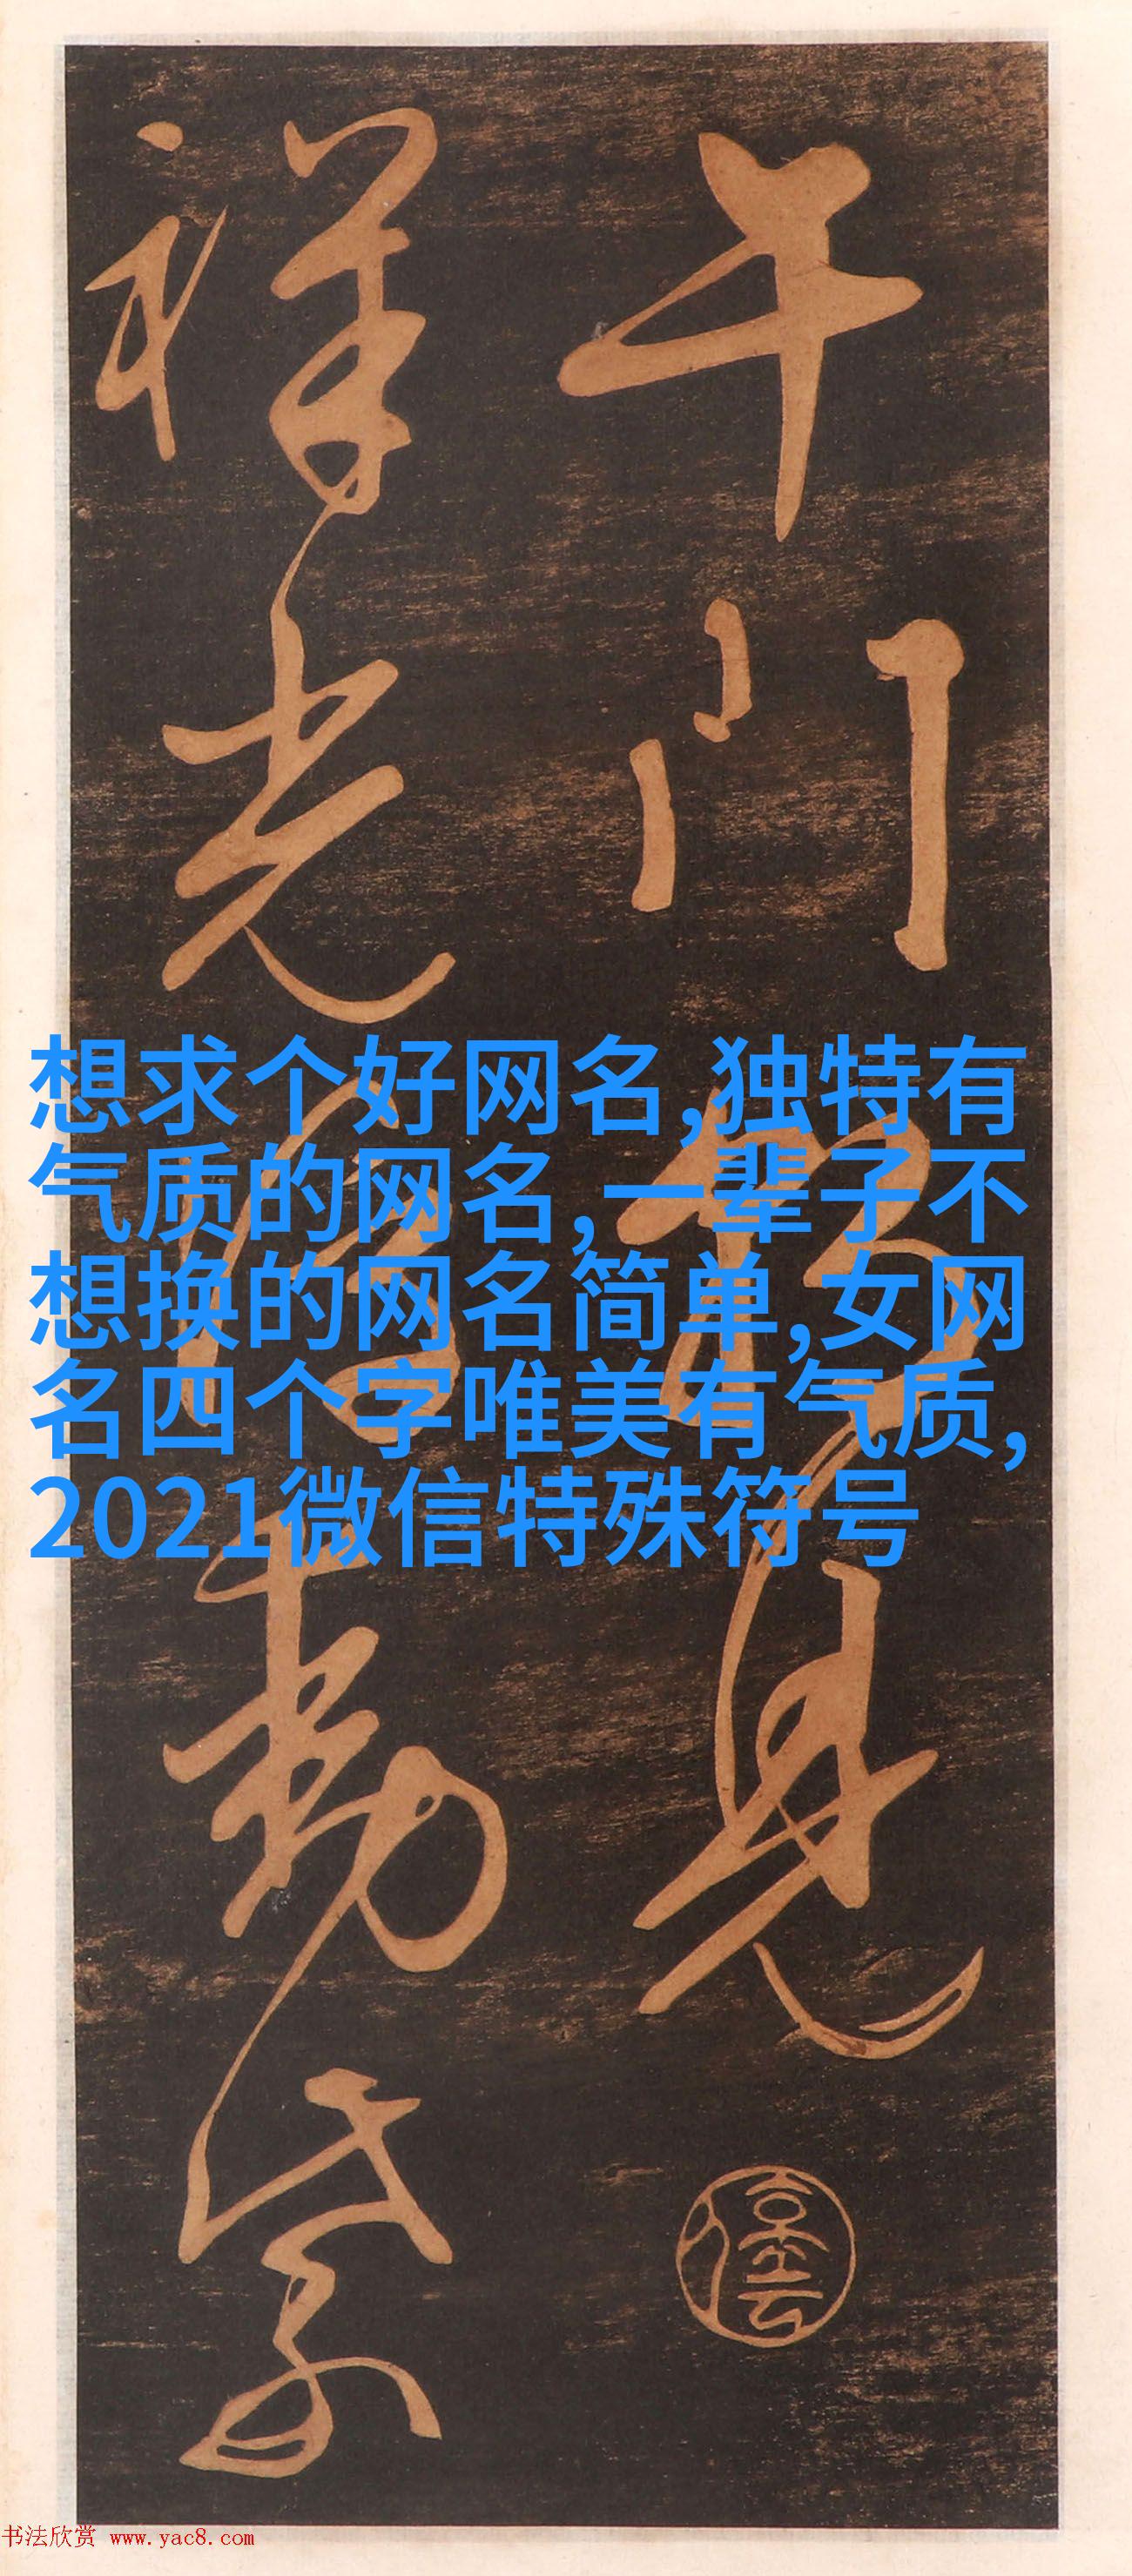 午门
见
祥光
动紫
想求个好网名,独特有
气质的网名,一辈子不
想换的网名简单,女网
名四个字唯美有气质,
2021微信特殊符号
书法欣赏 www.yac8.com